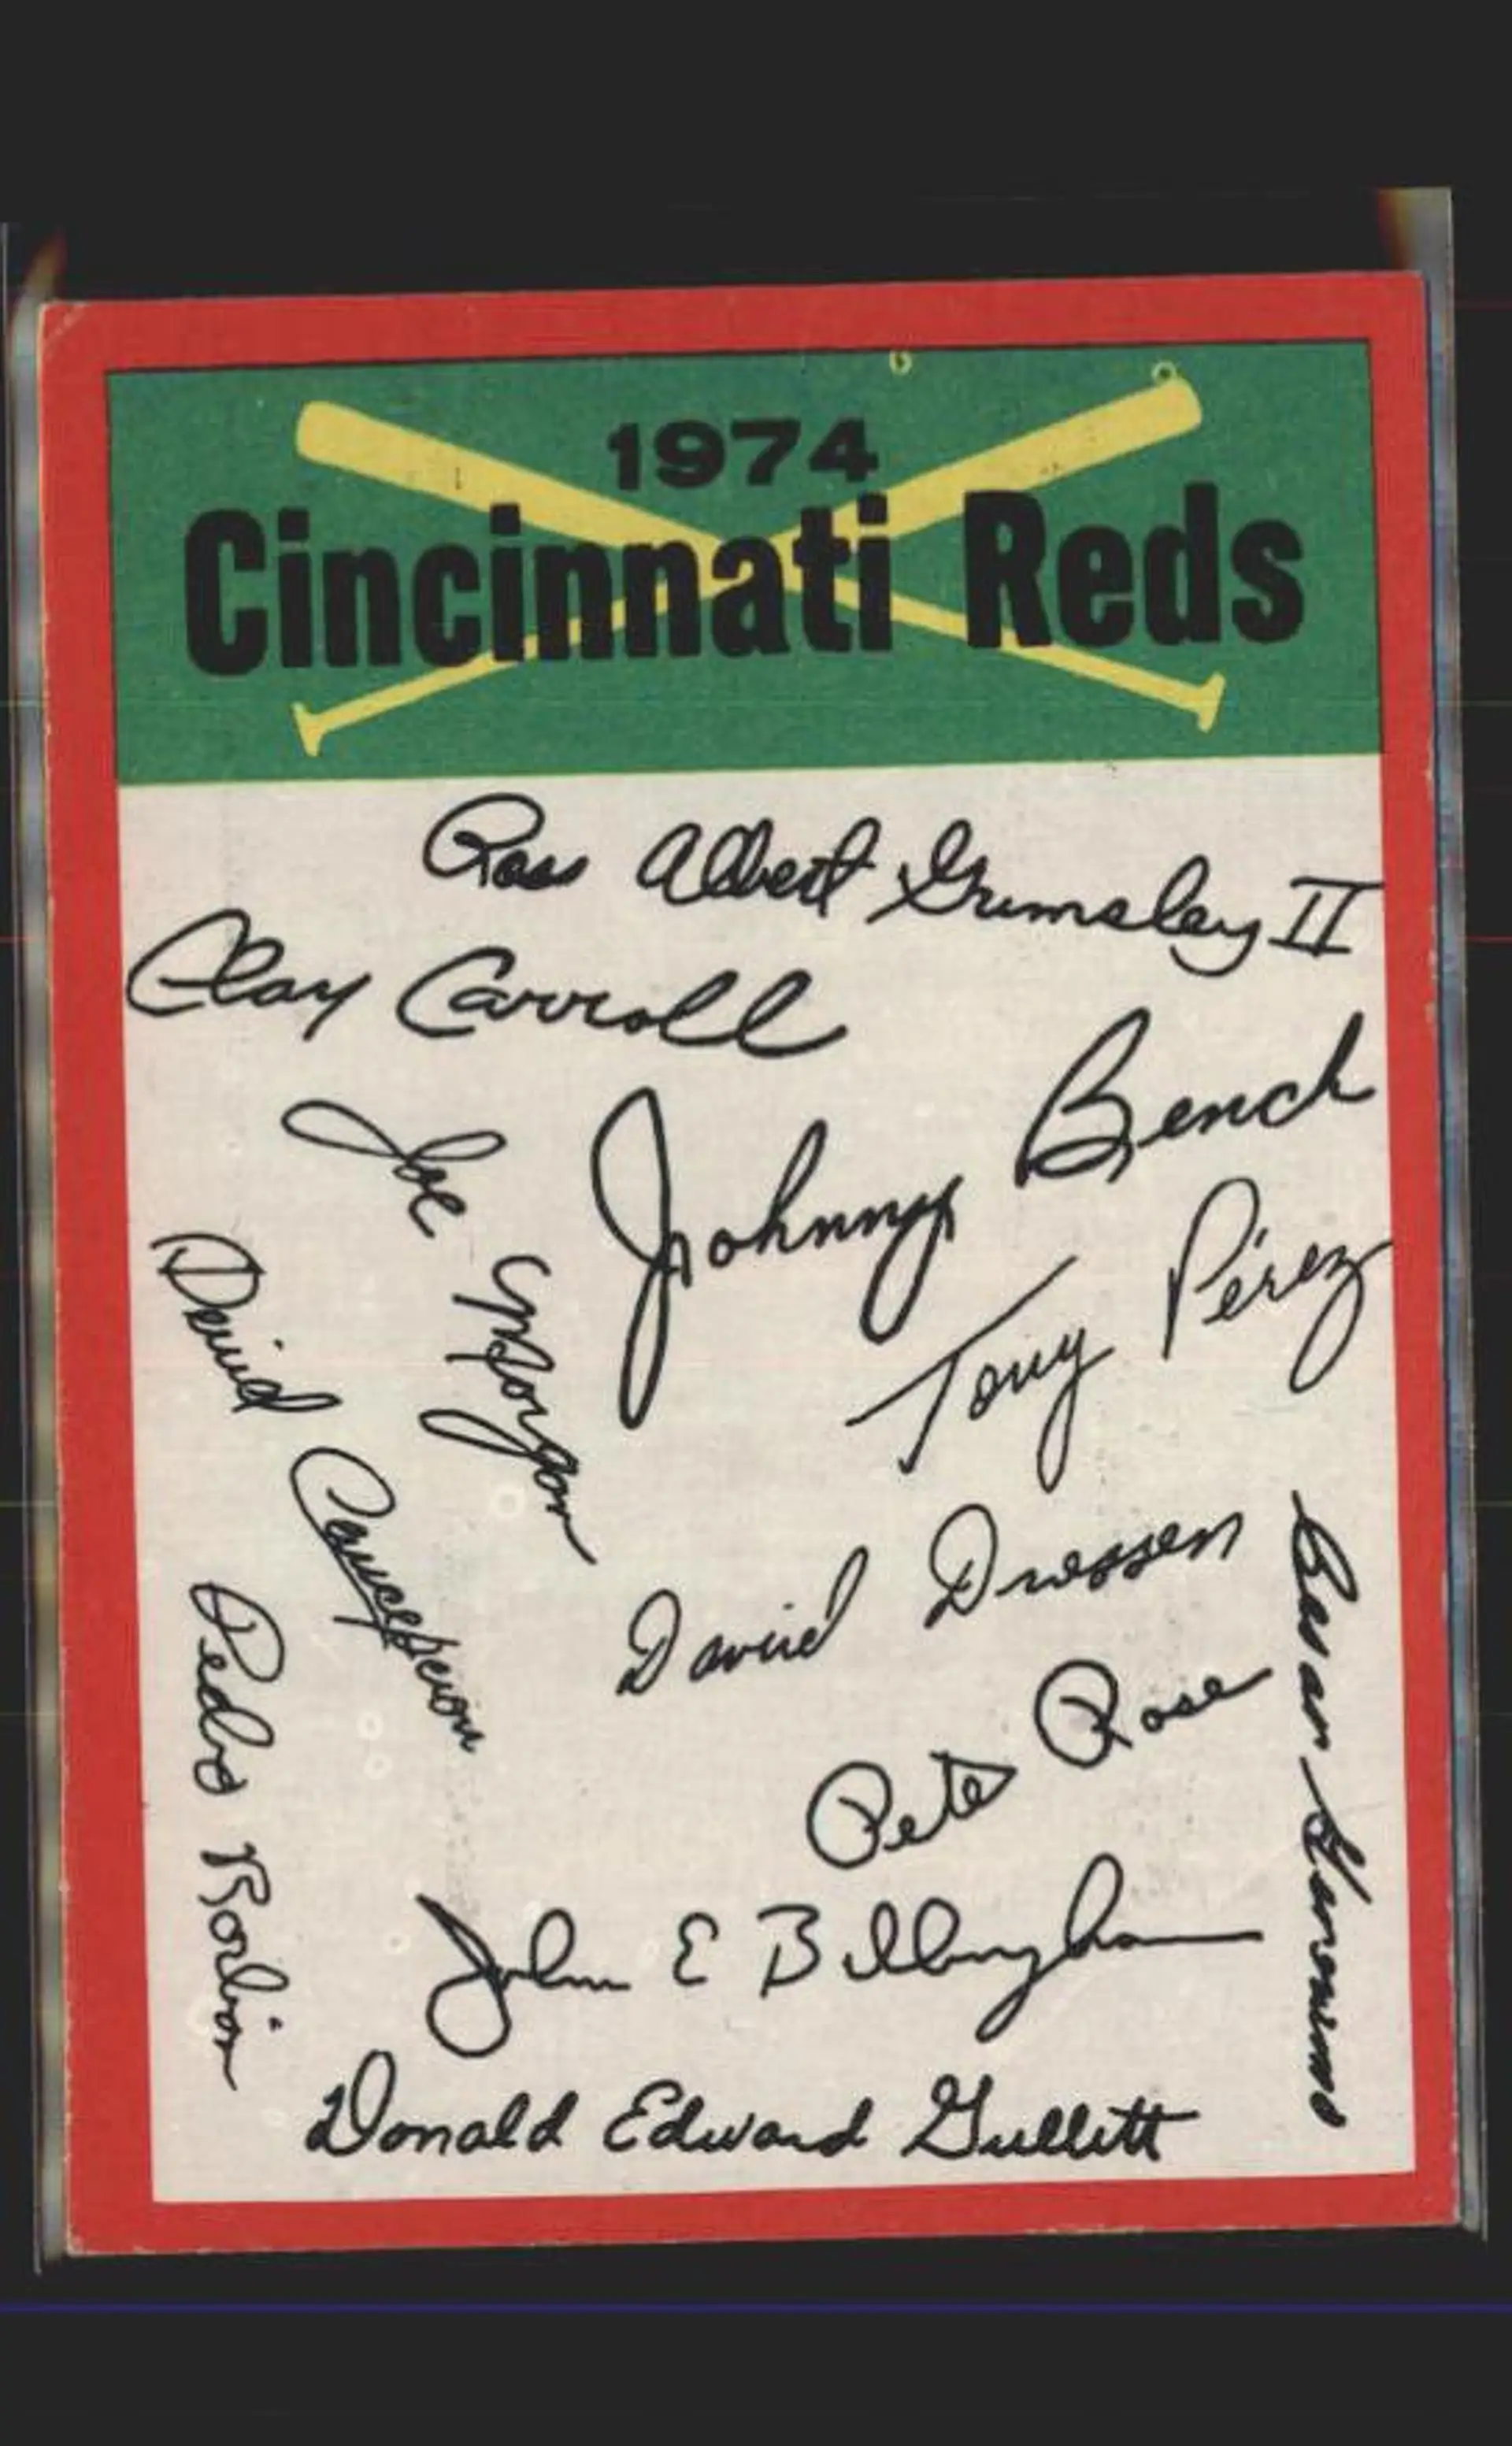 1974
Cincinnati Reds
Ross Albert Grimsley II
Clay Carroll
Johnny Bench
Joe Morgan
Tony Pérez
David Concepcion
David Driessen
Pete Rose
Cesar Geronimo
Pedro Borbon
John E Billingham
Donald Edward Gullett